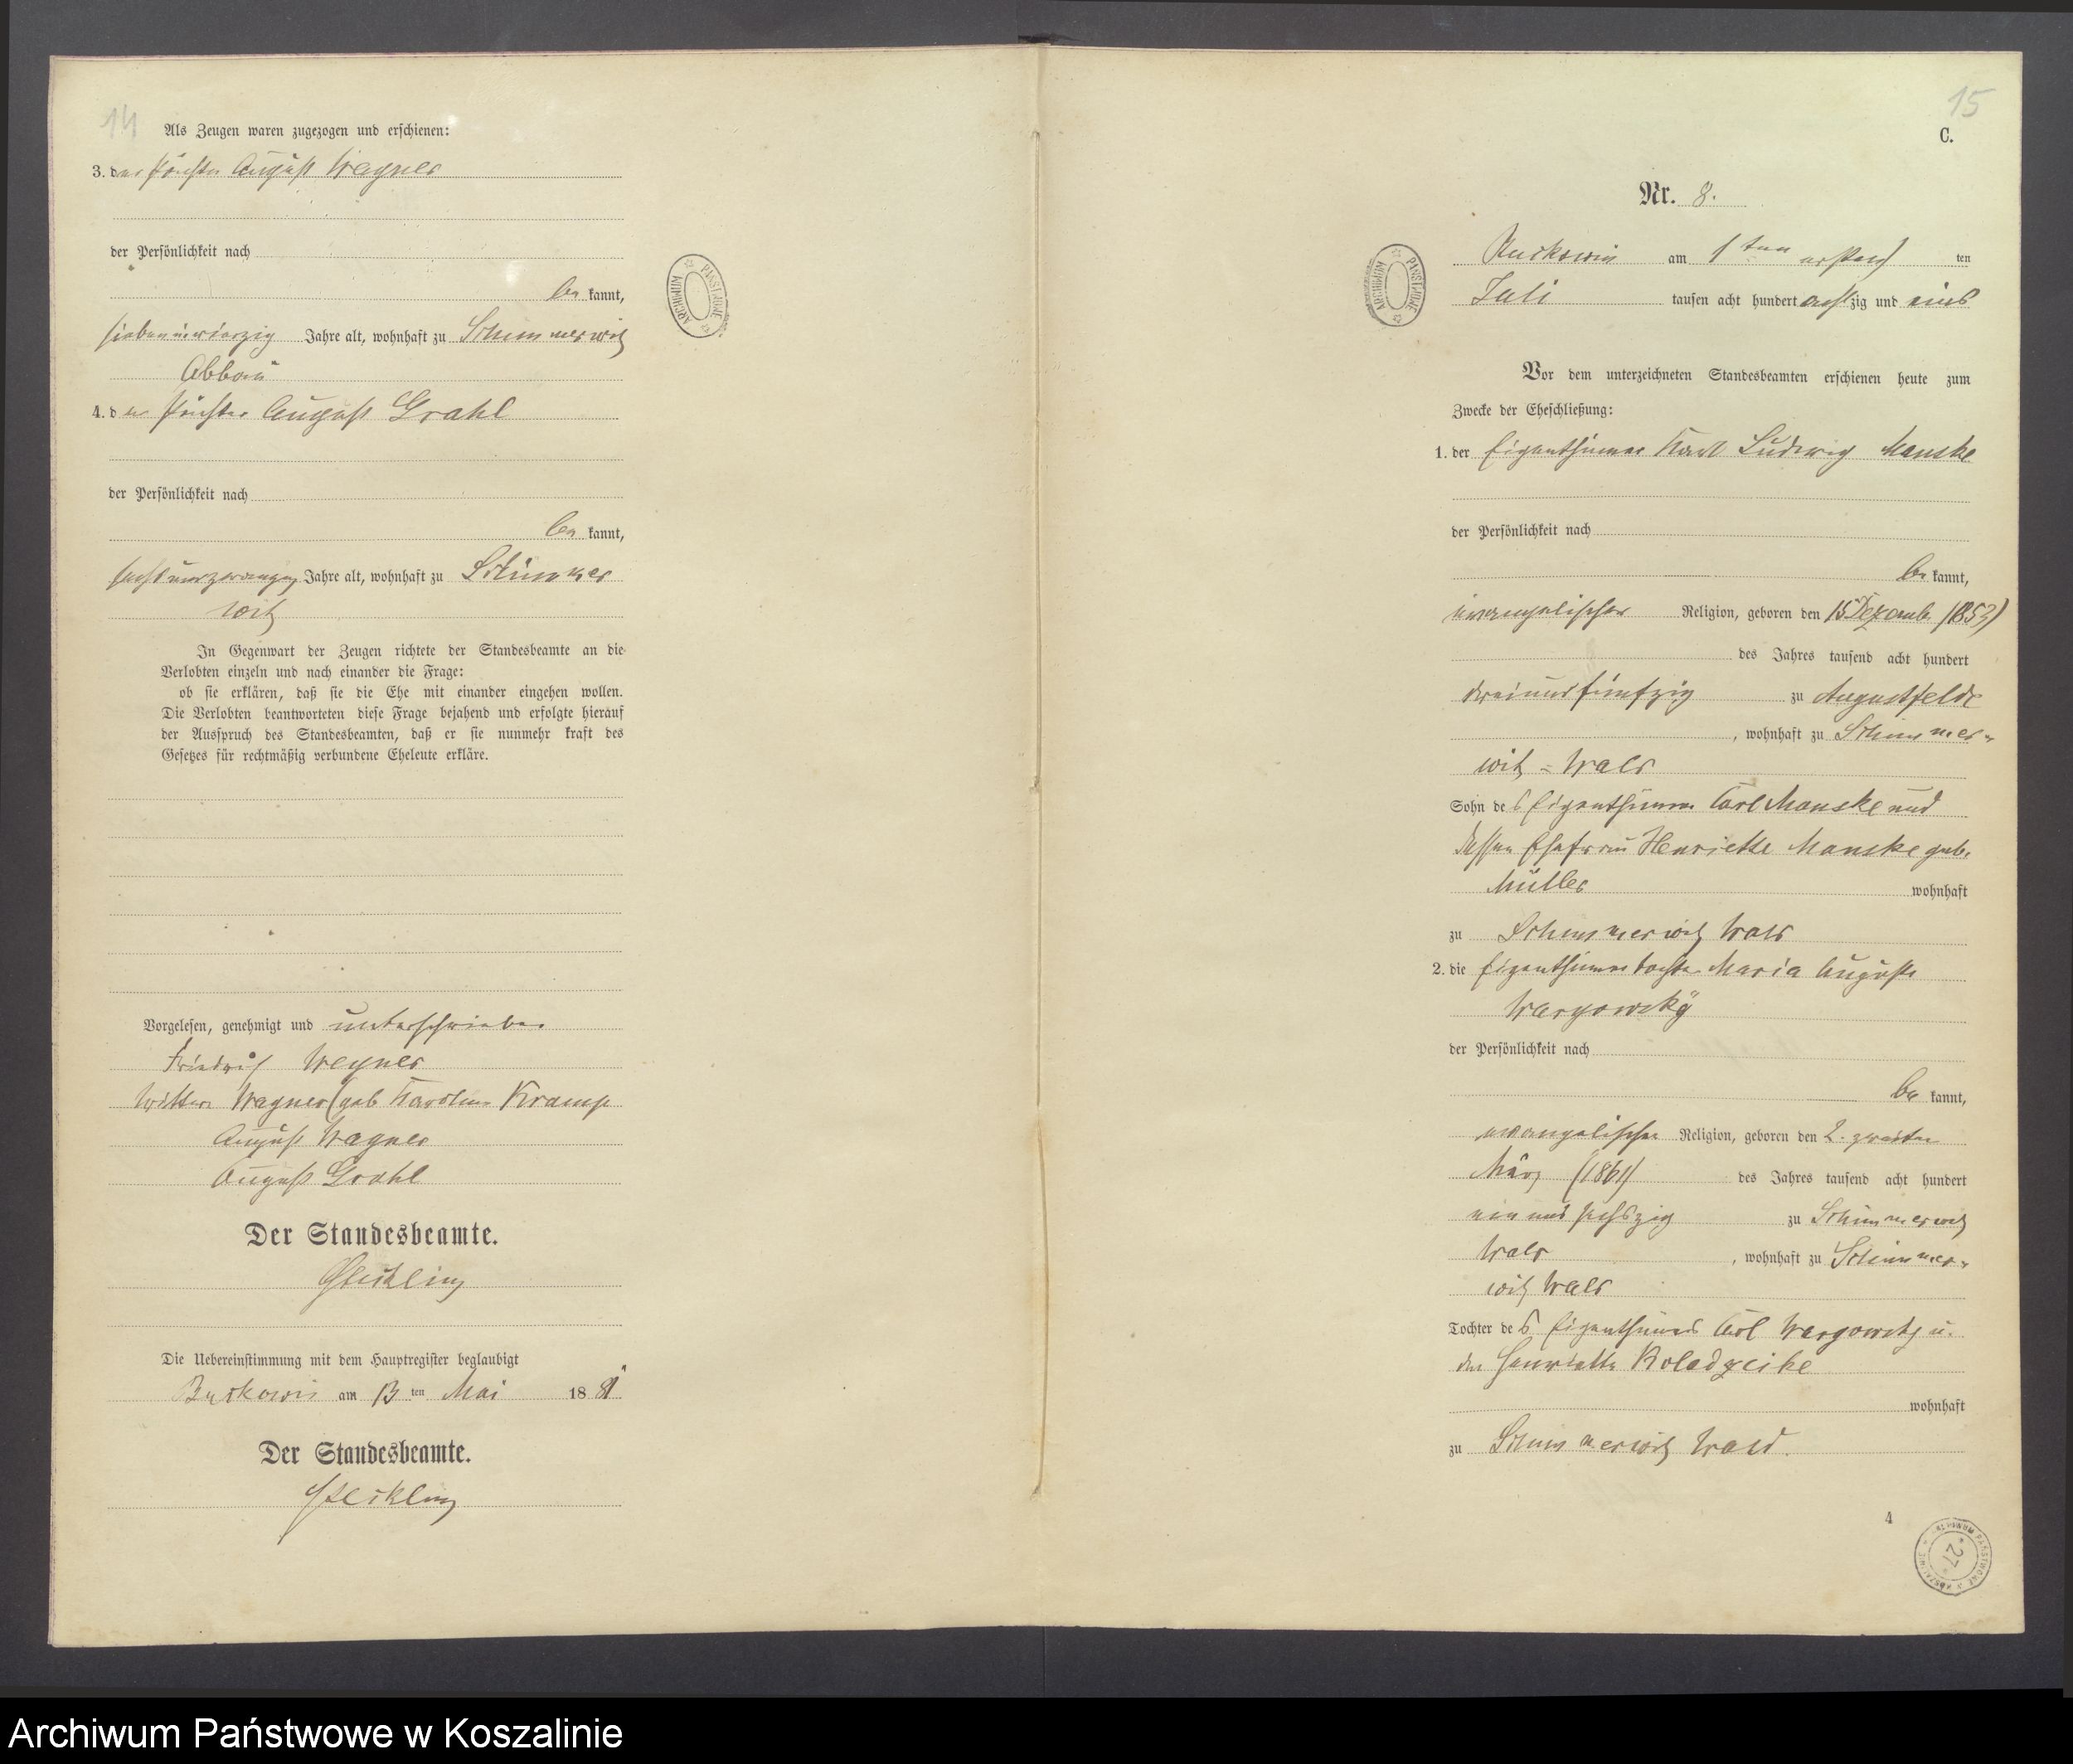 14
Als Zeugen waren zugezogen und erschienen:
3. der August Wegner
der Persönlichkeit nach
be kannt,
siebenundvierzig Jahre alt, wohnhaft zu Schimmerwitz
Abbau
4. der August Grahl
der Persönlichkeit nach
be kannt,
Jahre alt, wohnhaft zu Schimmer
witz
In Gegenwart der Zeugen richtete der Standesbeamte an die
Verlobten einzeln und nach einander die Frage:
ob sie erklären, daß sie die Ehe mit einander eingehen wollen.
Die Verlobten beantworteten diese Frage bejahend und erfolgte hierauf
der Ausspruch des Standesbeamten, daß er sie nunmehr kraft des
Gesetzes für rechtmäßig verbundene Eheleute erkläre.
Vorgelesen, genehmigt und unterschrieben
Friedrich Wegner
Wegner (geb Karoline Kramp
August Wagner
August Grahl
Der Standesbeamte.
Die Uebereinstimmung mit dem Hauptregister beglaubigt
am 13 ten Mai 18 81
Der Standesbeamte.
15
C.
Nr. 8.
am 1ten ersten ten
Juli tausen acht hundert acht zig und eins
Vor dem unterzeichneten Standesbeamten erschienen heute zum
Zwecke der Eheschließung:
1. der Eigenthümer Karl Ludwig Manske
der Persönlichkeit nach
be kannt,
evangelischer Religion, geboren den 15 Dezemb. (1853)
des Jahres tausend acht hundert
dreiundfünfzig zu Augustfelde
, wohnhaft zu Schimmer-
witz - Wald
Sohn des Eigenthümer Carl Manske und
dessen Ehefrau Henriette Manske geb.
Müller wohnhaft
zu Schimmerwitz Wald
2. die Eigenthümertochter Maria Auguste
Wargowsky
der Persönlichkeit nach
be kannt,
evangelischer Religion, geboren den 2. zweiten
März (1861) des Jahres tausend acht hundert
ein und sechszig zu Schimmerwitz
Wald , wohnhaft zu Schimmer-
witz Wald
Tochter des Eigenthümers Carl Wargowsky u.
der Henriette
wohnhaft
zu Schimmerwitz Wald.
4
ARCHIWUM PAŃSTWOWE
ARCHIWUM PAŃSTWOWE
27
Archiwum Państwowe w Koszalinie